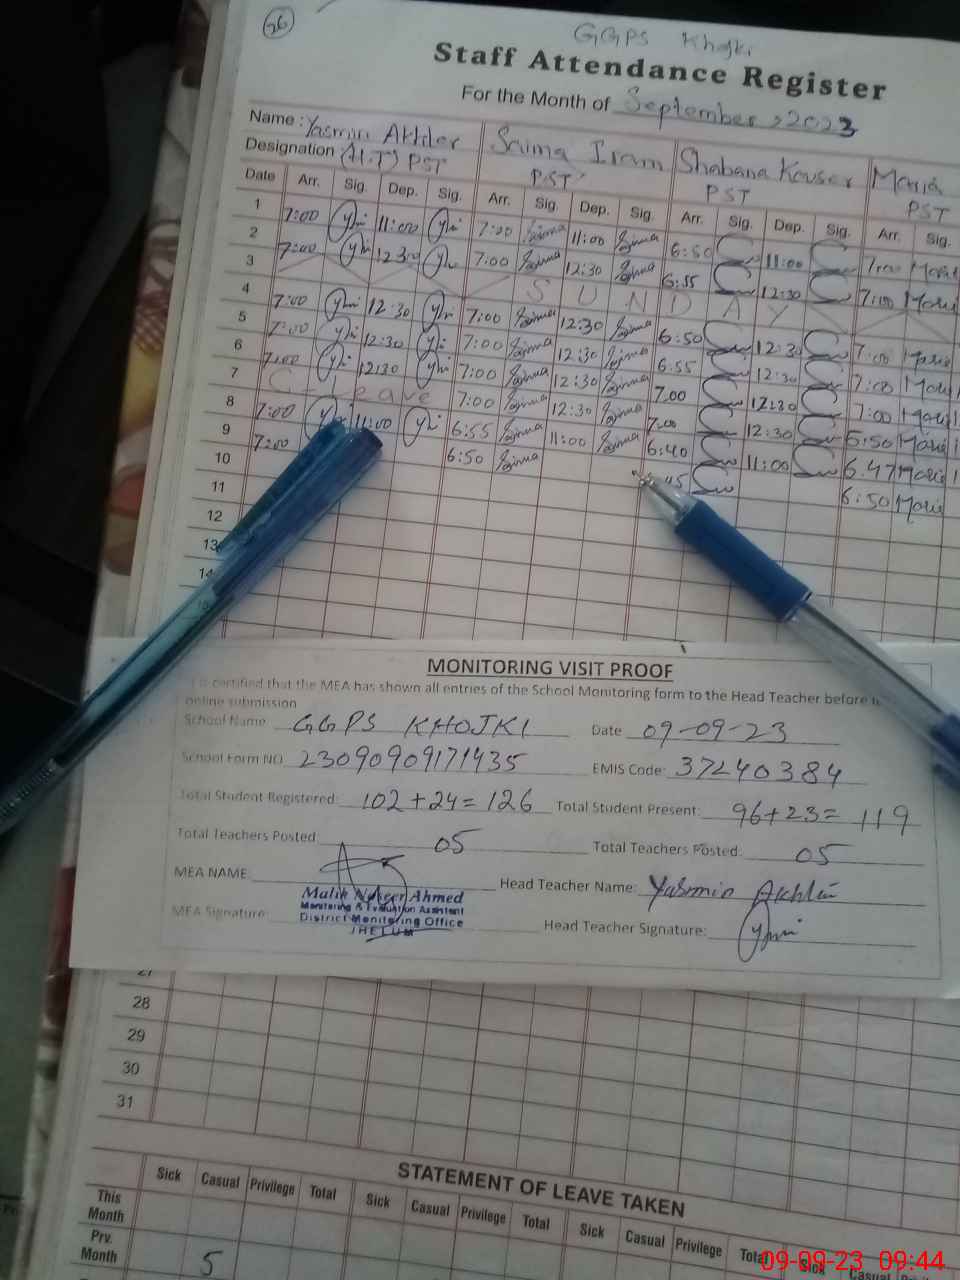 26
GGPS Khojki
Staff Attendance Register
For the Month of September, 2023
Name : Yasmin Akhter Saima Iram Shabana Kousar Maria
Designation (H.T) PST PST PST PST
Date Arr. Sig. Dep. Sig. Arr. Sig. Dep. Sig. Arr. Sig. Dep. Sig. Arr. Sig.
1 7:00 11:00 7:00 Saima 11:00 Saima 6:50 11:00 7:00 Maria
2 7:00 12:30 7:00 Saima 12:30 Saima 6:55 12:30 7:00 Maria
3 S U N D A Y
4 7:00 12:30 7:00 Saima 12:30 Saima 6:50 12:30 7:00 Maria
5 7:00 12:30 7:00 Saima 12:30 Saima 6:55 12:30 7:00 Maria
6 7:00 12:30 7:00 Saima 12:30 Saima 7:00 12:30 7:00 Maria
7 Leave 7:00 Saima 12:30 Saima 7:00 12:30 6:50 Maria
8 7:00 11:00 6:55 Saima 11:00 Saima 6:40 11:00 6:47 Maria
9 7:00 6:50 Saima 45 6:50 Maria
10
11
12
13
14
MONITORING VISIT PROOF
is certified that the MEA has shown all entries of the School Monitoring form to the Head Teacher before
online submission
School Name: GGPS KHOJKI Date 09-09-23
School Form NO 23090909171435 EMIS Code: 37240384
Total Student Registered: 102+24=126 Total Student Present: 96+23= 119
Total Teachers Posted: 05 Total Teachers Posted: 05
MEA NAME: Head Teacher Name: Yasmin Akhter
Malik Naseer Ahmed
Monitoring & Evaluation Assistant
MEA Signature: District Monitoring Office Head Teacher Signature:
JHELUM
27
28
29
30
31
STATEMENT OF LEAVE TAKEN
Sick Casual Privilege Total Sick Casual Privilege Total Sick Casual Privilege Total Sick Casual
This Month
Prv. Month 5
09-09-23 09:44